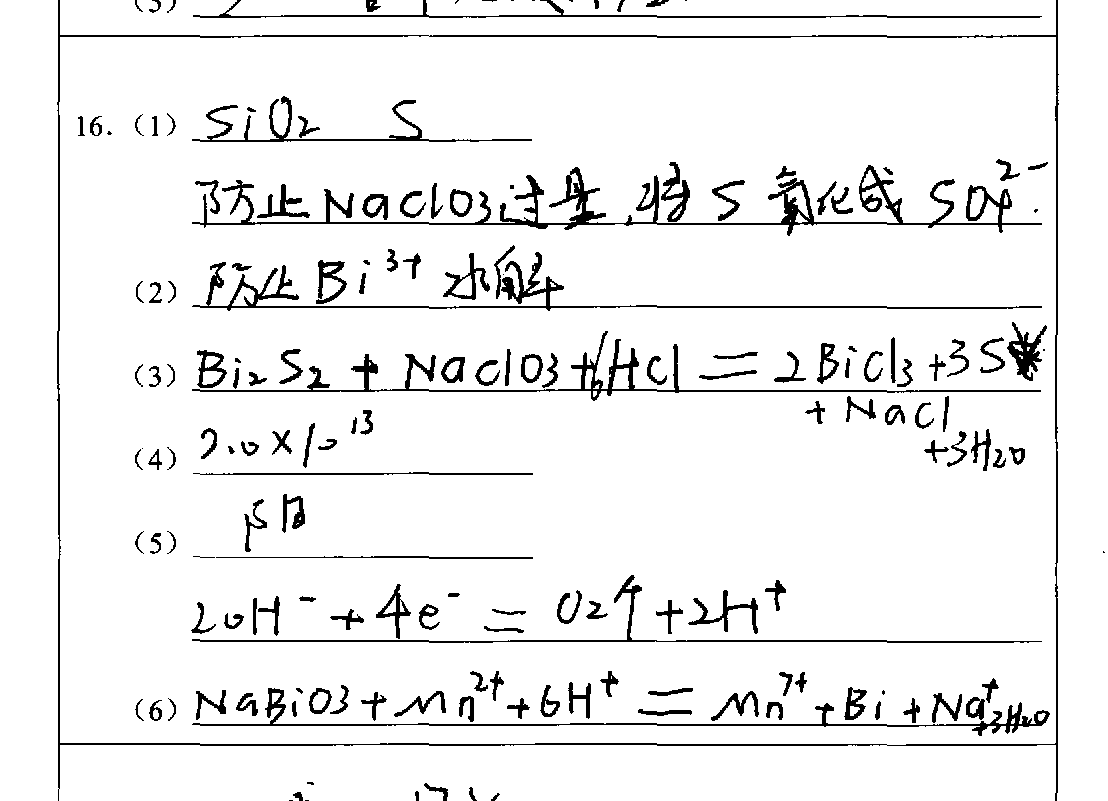 (3)
16. (1) SiO₂ S
防止NaClO3过量,将S氧化成SO₄²⁻.
(2) 防止Bi³⁺水解
(3) Bi₂S₂ + NaClO3 + 6HCl = 2BiCl₃ + 3S
+ NaCl
+3H₂O
(4) 2.0×10¹³
(5) 阳
2OH⁻ + 4e⁻ = O₂↑ + 2H⁺
(6) NaBiO3 + Mn²⁺ + 6H⁺ = Mn⁷⁺ + Bi + Na⁺
+3H₂O